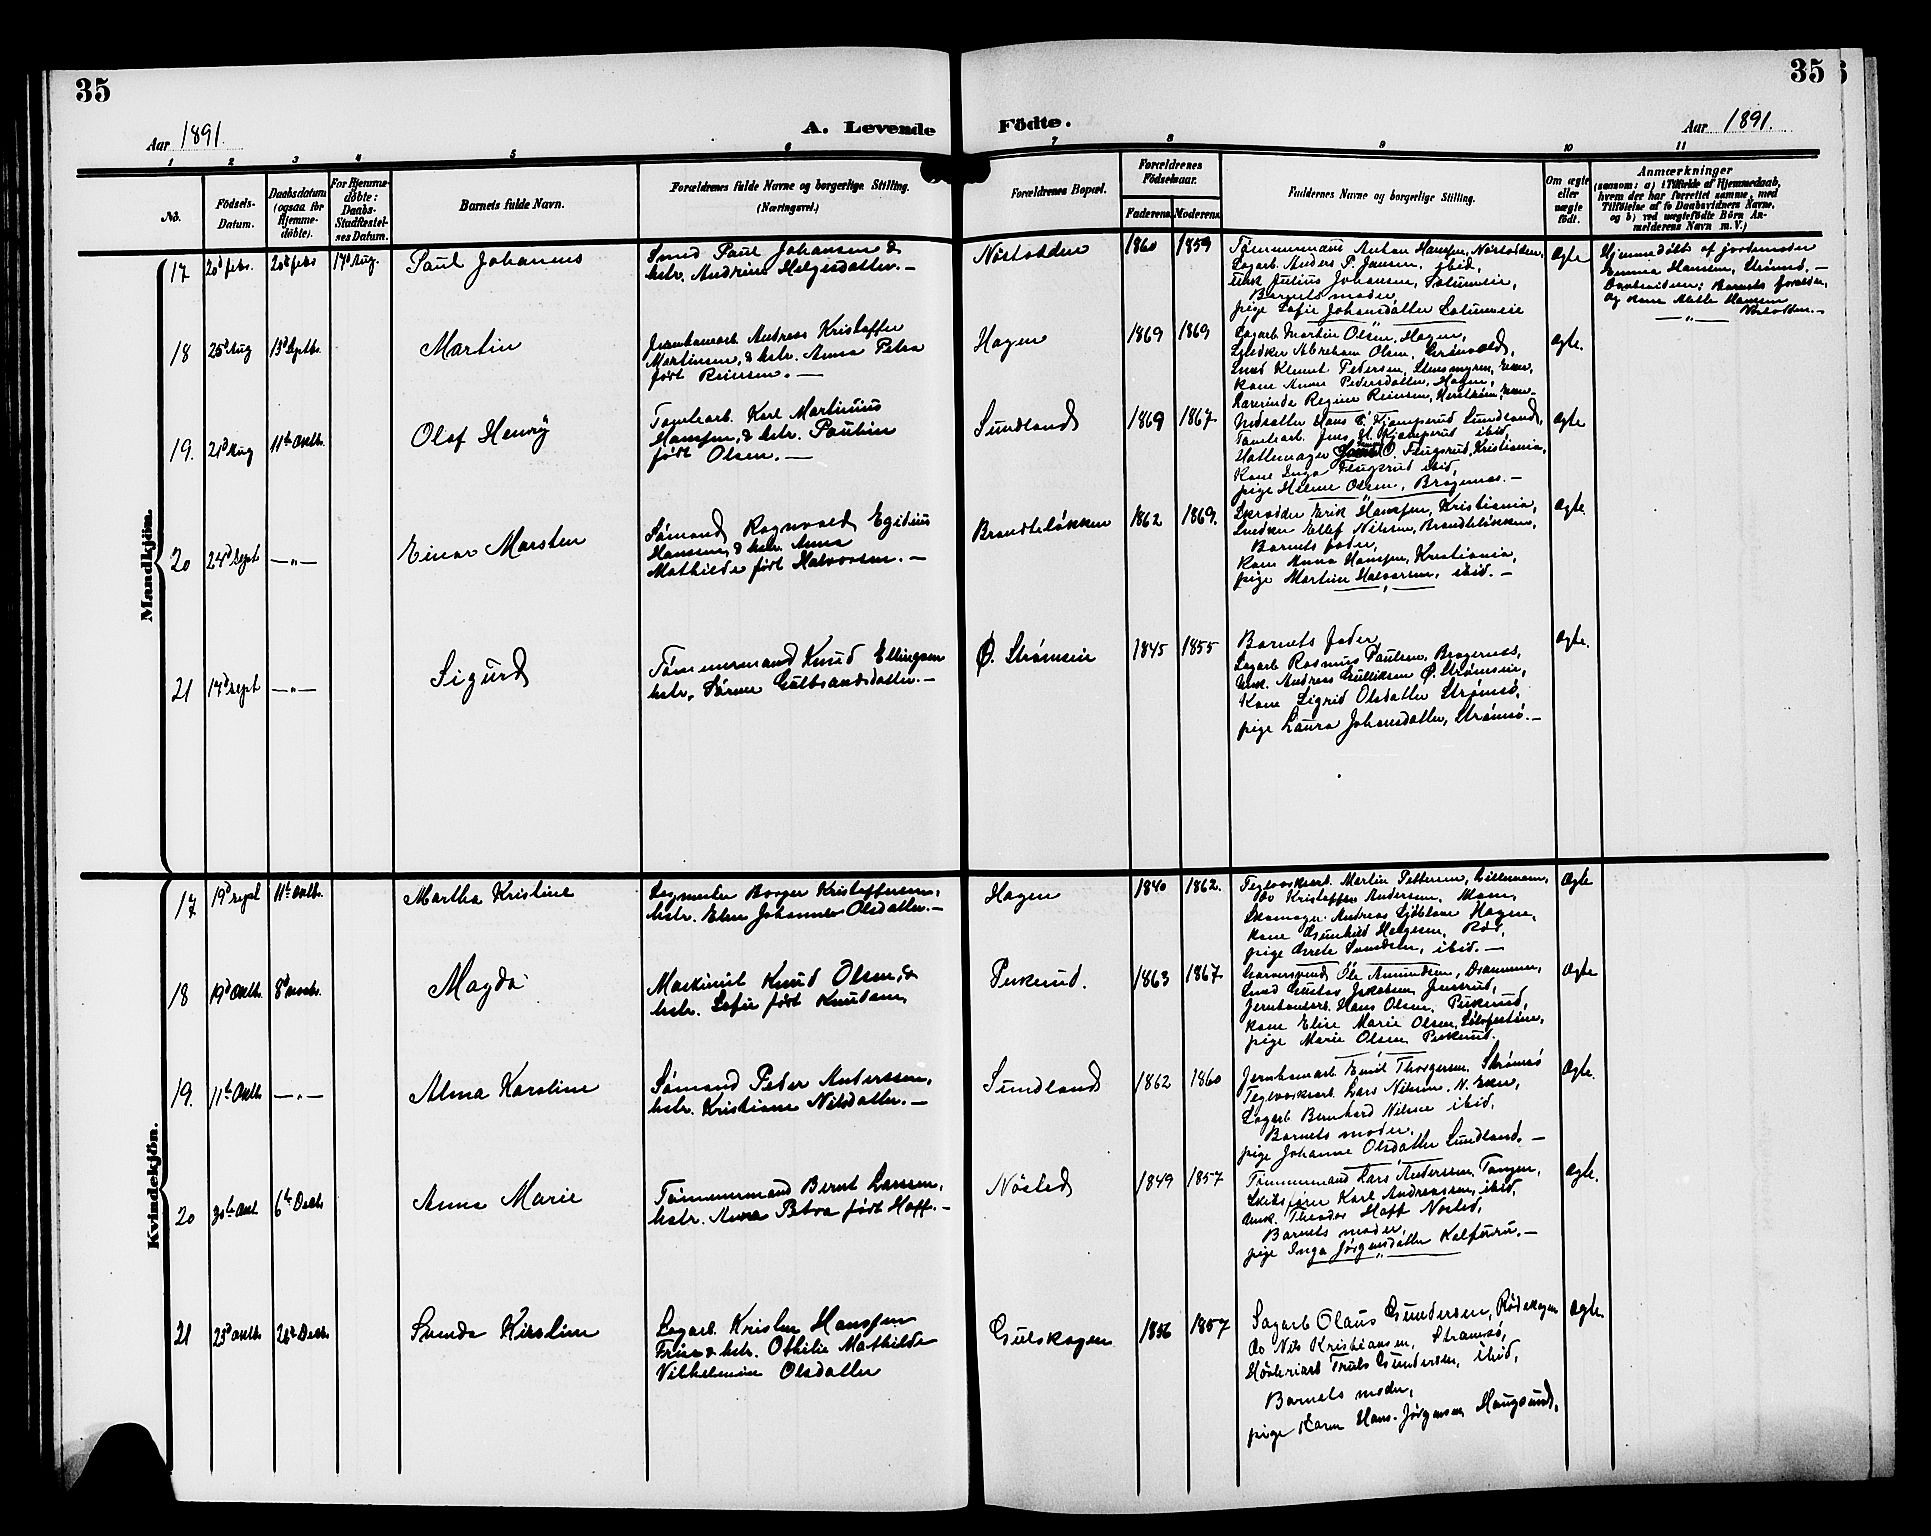 35
35
Aar 1891.
A. Levende Födte.
Aar 1891.
1 2 3 4 5 6 7 8 9 10 11
No.
Födsels-Datum.
Daabsdatum (ogsaa for Hjemme-döbte).
For Hjemme-döbte: Daabs-Stadfæstel-ses Datum.
Barnets fulde Navn.
Forældrenes fulde Navne og borgerlige Stilling. (Næringsvei.)
Forældrenes Bopæl.
Forældrenes Födselsaar.
Faderens. Moderens.
Faddernes Navne og borgerlige Stilling.
Om ægte eller uægte födt.
Anmærkninger
(saasom: a) i Tilfælde af Hjemmedaab, hvem der har forrettet samme, med Tilföielse af to Daabsvidners Navne, og b) ved uægtefödte Börn Anmelderens Navn m. V.)
Mandkjön.
17 20d febr. 20d febr 17d Aug. Paul Johannes
Smed Paul Johansen &
hstr. Andrine Helgesdatter. —
Nöstodden 1860 1859
Tømmermand Anton Hansen, Nöstodden,
Sagarb. Anders P. Jansen, ibid,
Enk. Julius Johansen, Solumsie,
Barnets moder,
pige Sofie Johansdatter Solumsie
Ægte
Hjemmedöbt af jordemoder
Emma Hansen, Strømsö. —
Daabsvidner: Barnets forældre,
og kone Mette Hansen
Nöstodden. —
18 25d Aug 13d Septbr. Martin
Jernbanearb Andreas Kristoffer
Martinsen, & hstr. Anna Petra
født Reiersen. —
Hagen 1869 1869
Sagarb Martin Olsen, Hagen,
Snedker Abraham Olsen, Grønvold,
Smed Klemet Pedersen,
Kone Anne Pedersdatter, Hagen,
Regine Reiersen,
Ægte.
19. 21d Aug 11te Octbr. Olaf Henry
Tomtearb. Karl Martinius
Hansen, & hstr. Pauline
født Olsen. —
Sundland 1869 1867.
Hans Kjemperud Sundland,
Tomtearb. Jens H. Kjemperud ibid.
Hattemager O. Flugsrud, Kristiania,
Kone Inga Flugsrud ibid,
pige Helene Olsen, Bragenes. —
Ægte
20 24d Sept — " — Einar Marsten
Sømand Ragnvald Egidius
Hansen, & hstr. Anna
Mathilde født Halvorsen. —
Brandteløkken 1862 1869.
Skrædder Erik Hansen, Kristiania,
Snedker Ellef Nilsen, Brandteløkken,
Barnets fader,
Kone Anna Hansen, Kristiania,
pige Martine Halvorsen, ibid. —
Ægte.
21 14d Sept — " — Sigurd
Tømmermand Knud Ellingsen
hstr. Sørine Gulbrandsdatter. —
Ø. Strømsie 1845 1855
Barnets fader,
Sagarb Rasmus Paulsen, Bragernes,
Enk. Andreas Gulliksen Ø. Strømsie,
Kone Sigrid Olsdatter Strømsö,
pige Laura Johansdatter, Strømsö. —
Ægte.
Kvindekjön.
17. 19d Sept 11te Octbr. Martha Kristine
Sagmester Borger Kristoffersen,
hstr. Elen Johanne Olsdatter. —
Hagen 1840 1862.
Teglverksarb. Martin Pettersen,
Do Kristoffer Andersen, Moen,
Skomager Andreas Sjöblom Hagen,
Kone Gunhild Helgesen,
pige Grete Svendsen, ibid. —
Ægte
18 19d Octbr. 8d Novbr. Magda
Maskinist Knud Olsen &
hstr. Sofie født Knudsen
Pukerud. 1863 1867
Garversvend Ole Amundsen, Drammen,
Smed Gustav Jakobsen
Jernbanearb. Hans Olsen, Pukerud,
Kone Elise Marie Olsen,
pige Marie Olsen Pukerud.
Ægte
19. 11te Octbr — " — Alma Karoline
Sømand Peder Anderssen,
hstr. Kristiane Nilsdatter. —
Sundland 1862 1860
Jernbanearb Emil Thorgersen, Strømsö
Teglverksarb Lars Nilsen, N. Eker,
Sagarb Bernhard Nilsen ibid,
Barnets moder,
pige Johanne Olsdatter Sundland. —
Ægte.
20 6te Decbr. Anna Marie
Tømmermand Bernt Larssen,
hstr. Anna Petra født Hoff. —
Nösted 1849 1857
Tømmermand Lars Anderssen, Tangen,
Skibsfører Karl Andreassen, ibid,
Enk. Theodor Hoff Nösted,
Barnets moder,
pige Inga Jørgensdatter Kalferru. —
Ægte.
21 23d Octbr. Kirstine
Sagarb. Kristen Hanssen
hstr. Othilie Mathilde
Vilhelmine Olsdatter
Gulskogen 1856 1857
Sagarb Olaus Gundersen, Rödskogen
Do Nils Kristiansen, Strømsö,
Truls Gundersen, ibid,
Barnets moder,
pige Karen Hans. Jørgensen Haugsund.
Ægte.